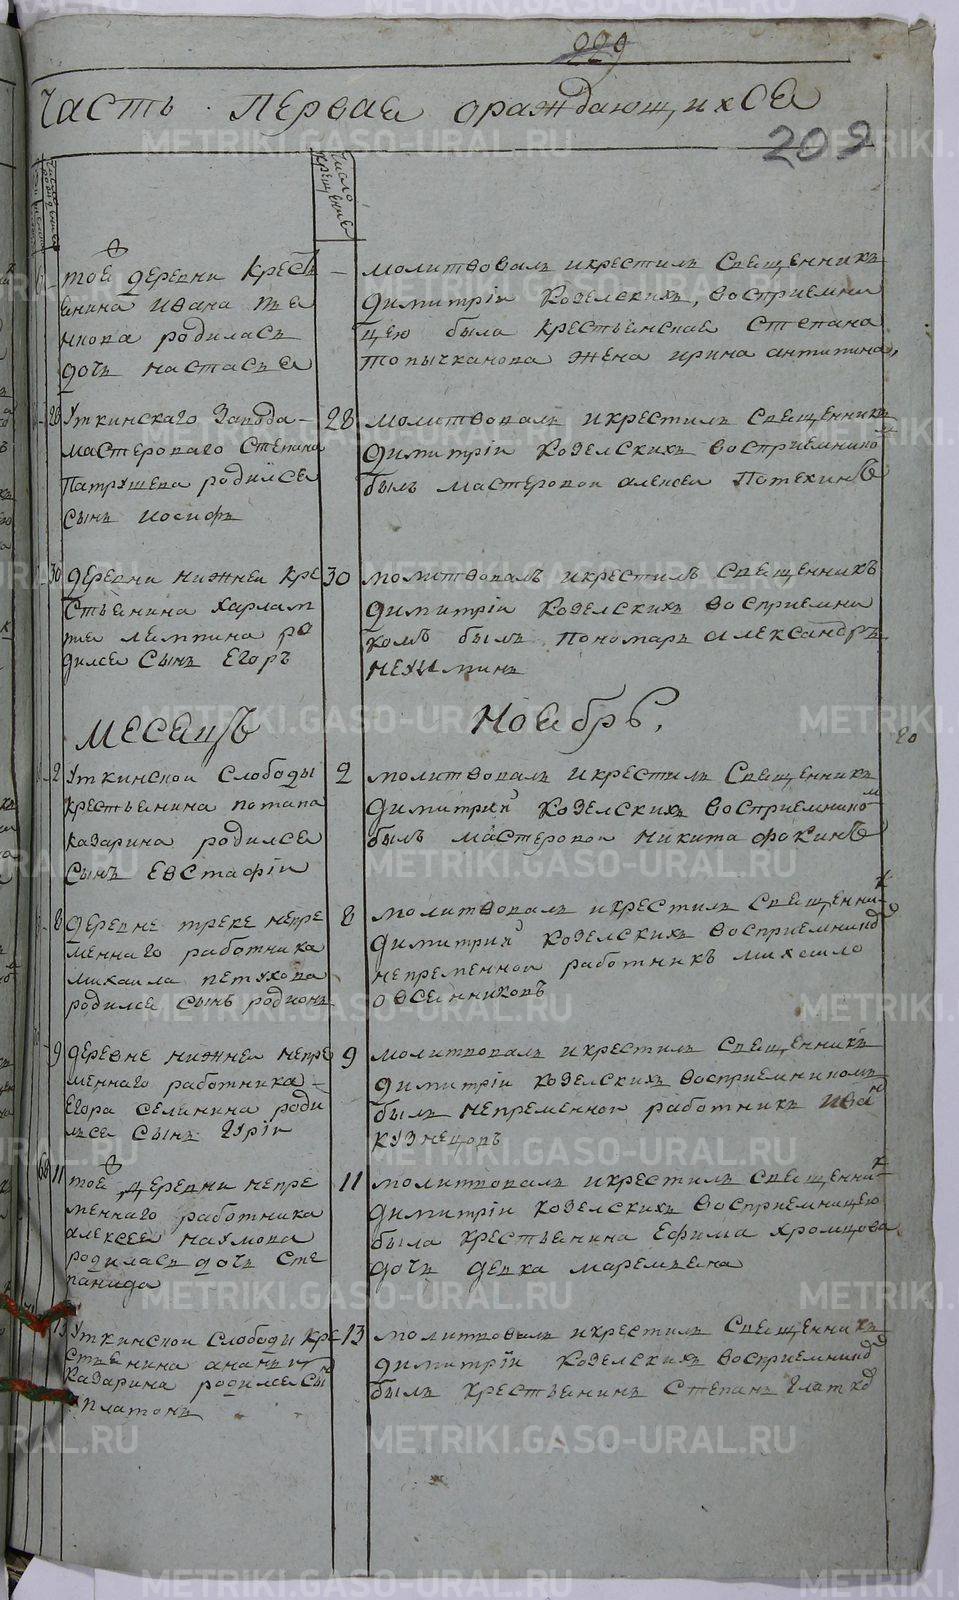 209
Часть Первая о раждающихся
209
Число рождения
Число крещения
тоя деревни Крест
янина Ивана
родилась
дочь Настасья
молитвовалъ и крестилъ Священникъ
Димитрій Козелскихъ, восприемни
цею была крестьянская Степана
Топычканова жена Ирина Антипина,
28 Уткинскаго Завода
мастероваго Степана
Патрушева родился
сынъ Иосифъ
28 молитвовалъ и крестилъ Священникъ
Димитрій Козелскихъ восприемнико
былъ мастеровои Алексеи Потехинъ
30 деревни нижней кре
стьянина Харлам
пия Ляпина ро
дился сынъ Егоръ
30 молитвовалъ и крестилъ Священникъ
Димитрій Козелскихъ восприемни
комъ былъ пономарь Александръ
месяцъ Ноябрь,
2 Уткинскои Слободы
крестьянина Потапа
Казарина родился
сынъ Евстафіи
2 молитвовалъ и крестилъ Священникъ
Димитрий Козелскихъ восприемником
былъ мастеровои Никита Фокинъ
8 деревне треке непре
меннаго работника
Михаила Петухова
родился сынъ Родионъ
8 молитвовалъ и крестилъ Священник
Димитрий Козелскихъ восприемнико
непременнои работникъ Михаило
Овсянниковъ
9 деревне нижнея непре
меннаго работника
Егора Селинина роди
лся сынъ Гурій
9 молитвовалъ и крестилъ Священникъ
Димитрій Козелскихъ восприемникомъ
былъ непременнои работникъ Иван
Кузнецовъ
60 11 тоя деревни непре
меннаго работника
Алексея Наумова
родилась дочь Сте
панида
11 молитвовалъ и крестилъ Священник
Димитрій Козелскихъ восприемницею
была крестьянина Ефима Хромцова
дочь девка Маремьяна
13 Уткинскои Слободи кре
стьянина Ананьи
Казарина родился сын
Платонъ
13 молитвовалъ и крестилъ Священникъ
Димитрій Козелскихъ восприемнико
былъ крестьянинъ Степанъ Глатко
METRIKI.GASO-URAL.RU